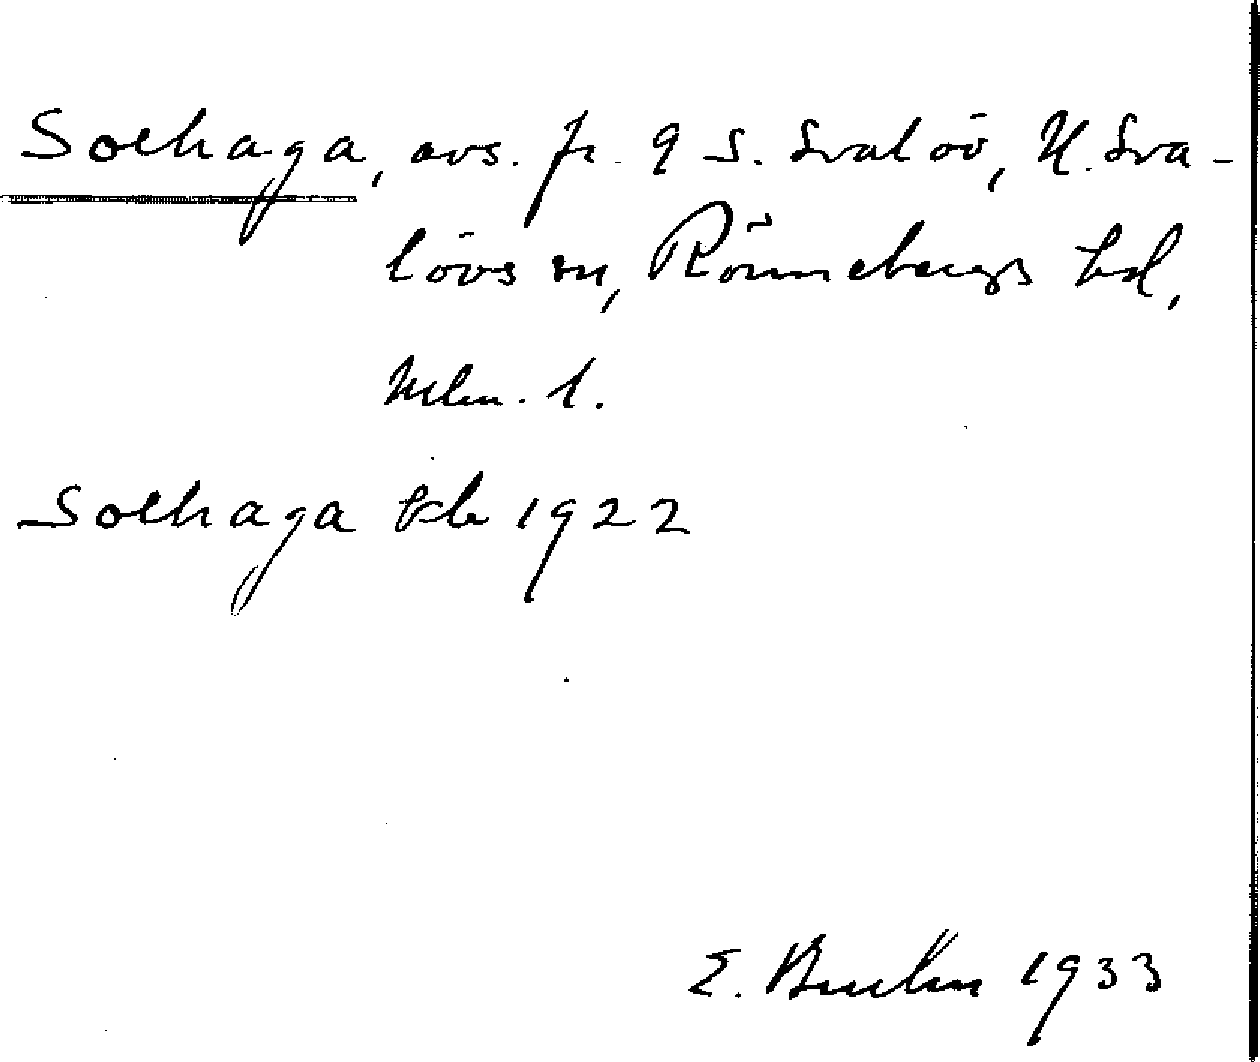 Solhaga, avs. fr. 9 S. Svalöv, N. Sva-
lövs sn, Rönnebergs hd,
Mlm. l.
Solhaga Kb 1922
E. 1933